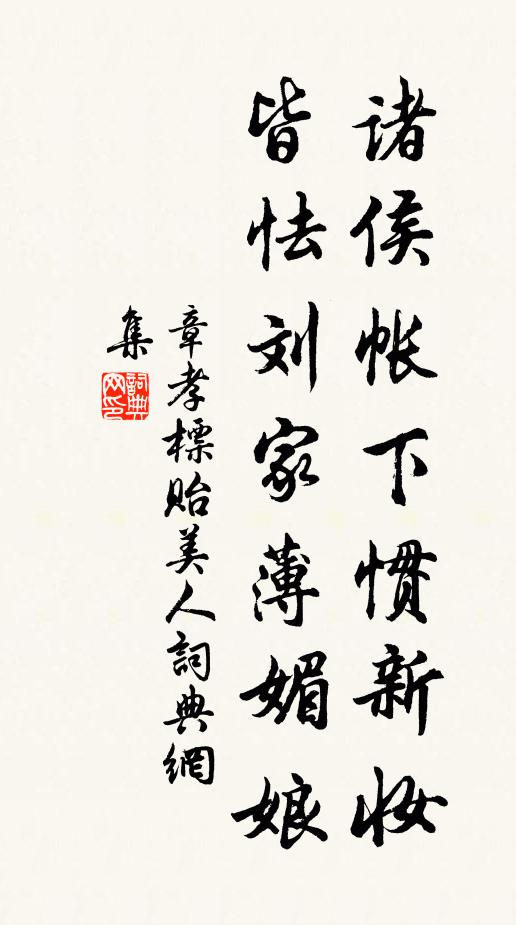 诸侯帐下惯新妆
皆怯刘家薄媚娘
章孝標贻美人詞典網
集
詞典网印